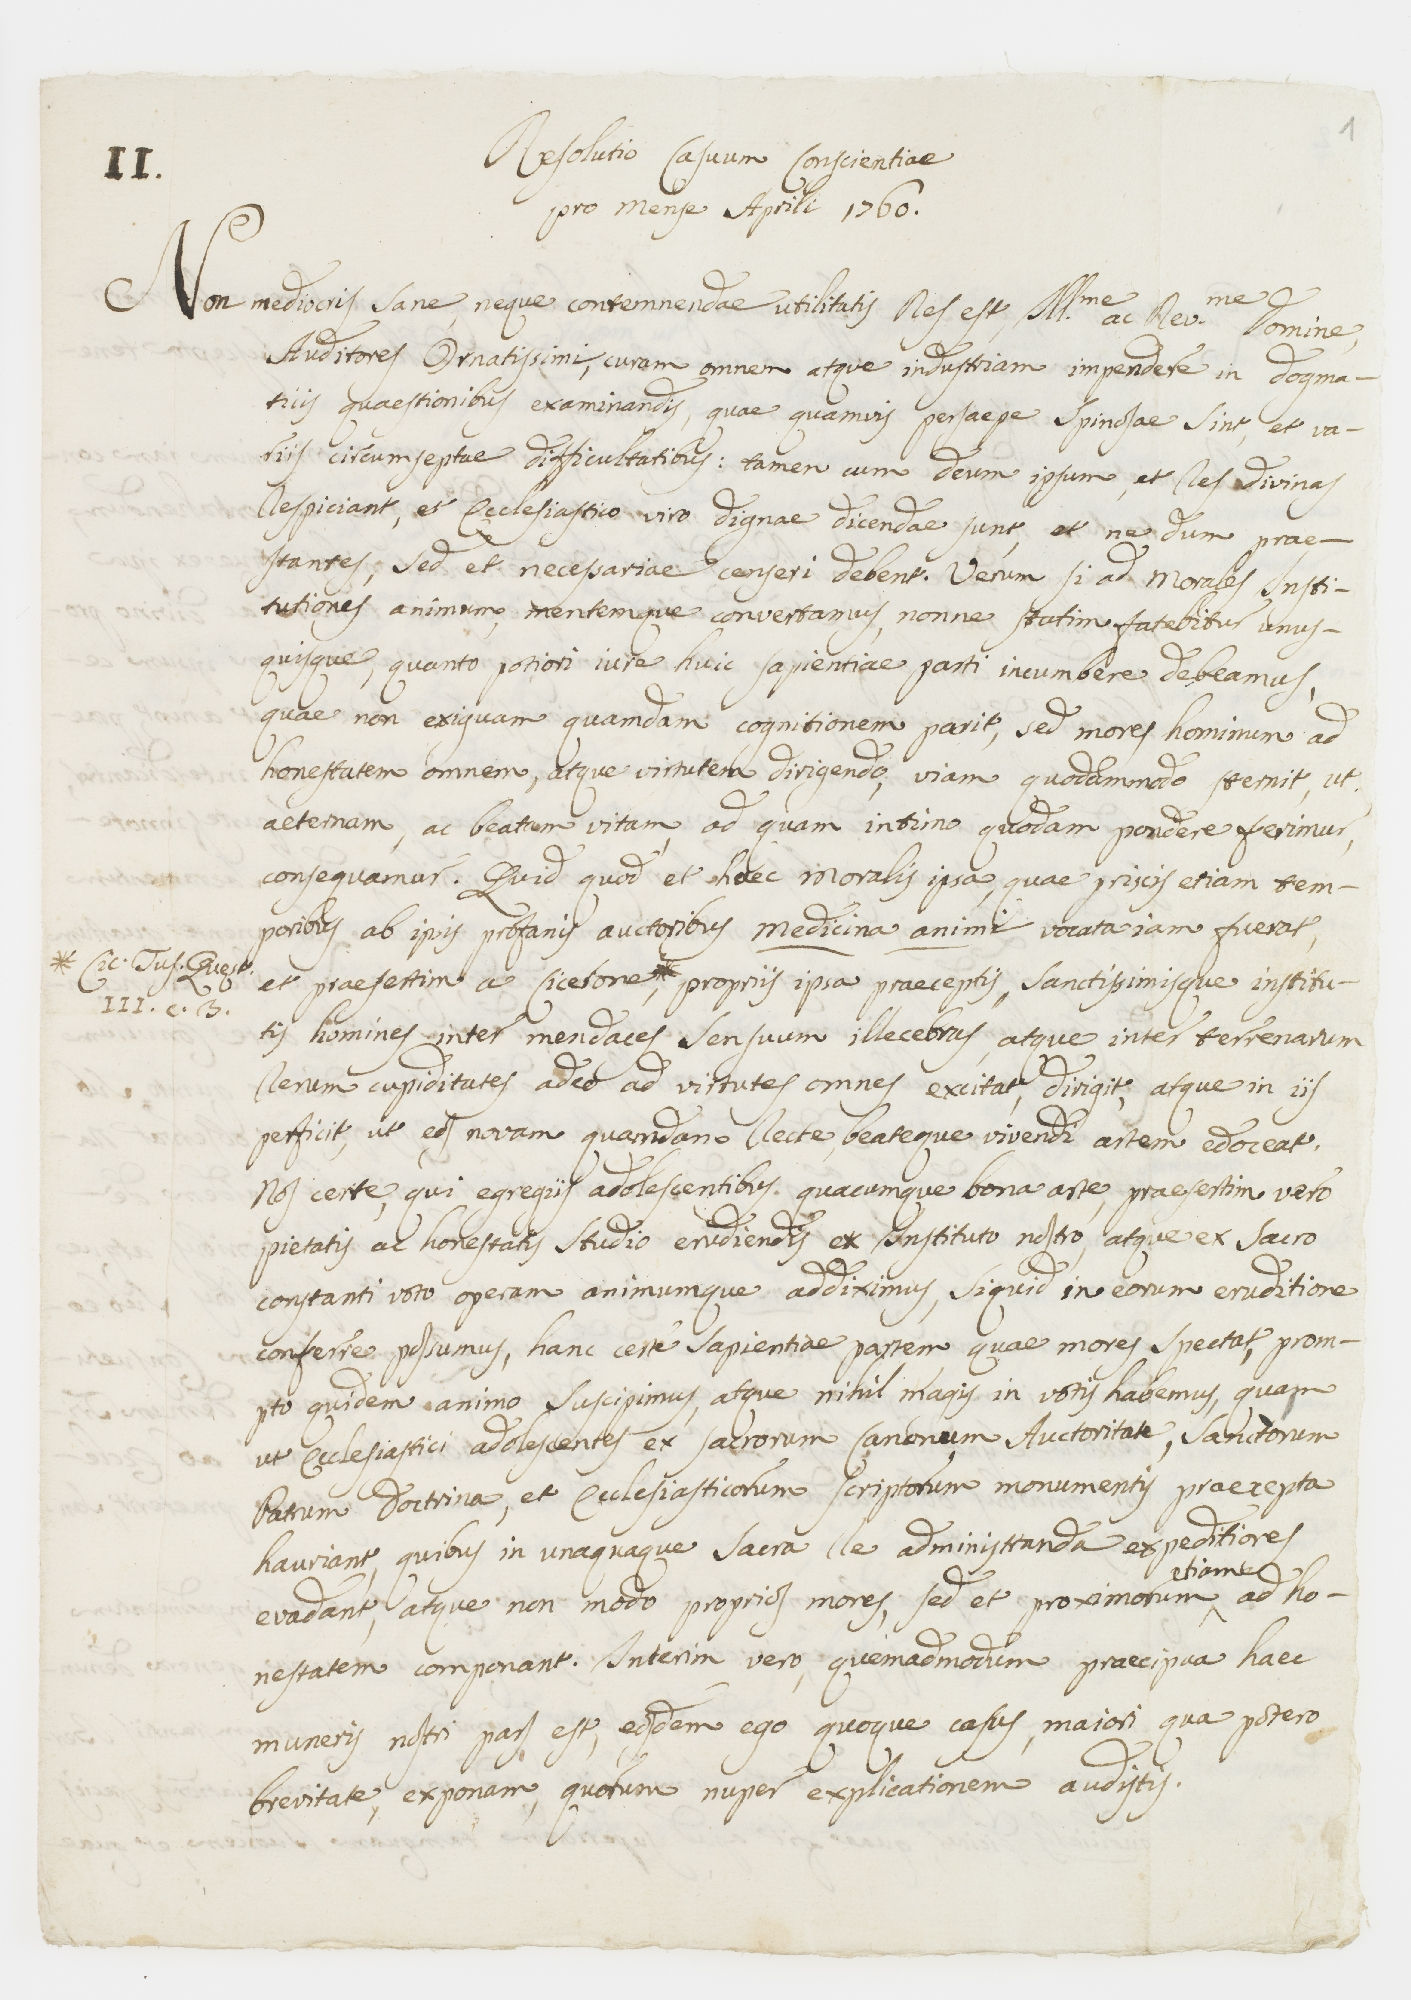 1
II.
Resolutio Casuum Conscientiae
pro Mense Aprili 1760.
Non mediocris sane, neque contemnendae utilitatis Res est, Ill.me ac Rev.me Domine,
Auditores Ornatissimi, curam omnem atque industriam impendere in dogma-
ticis quaestionibus examinandis, quae quamvis persaepe spinosae sint, et va-
riis circumseptae difficultatibus: tamen cum Deum ipsum, et Res Divinas
Respiciant, et Ecclesiastico viro dignae dicendae sunt, et ne dum prae-
stantes, sed et necessariae censeri debent. Verum si ad Morales Insti-
tutiones animum, mentemque convertamus, nonne statim fatebitur unus-
quisque, quanto potiori iure huic sapientiae parti incumbere debeamus,
quae non exiguam quamdam cognitionem parit, sed mores hominum ad
honestatem omnem, atque virtutem dirigendo, viam quodammodo sternit, ut
aeternam, ac beatam vitam, ad quam intimo quodam pondere ferimur,
consequamur. Quid quod et haec Moralis ipsa, quae priscis etiam tem-
poribus ab ipsis profanis auctoribus medicina animi vocata iam fuerat,
* Cic. Tus. Quest. III. c. 3.
et praesertim a Cicerone*, propriis ipsa praeceptis, sanctissimisque institu-
tis homines inter mendaces sensuum illecebras, atque inter terrenarum
Rerum cupiditates adeo ad virtutes omnes excitat, dirigit, atque in iis
perficit, ut eos novam quamdam Recte, beateque vivendi artem edoceat.
Nos certe, qui egregiis adolescentibus quacumque bona arte, praesertim vero
pietatis ac honestatis studio erudiendis ex Instituto nostro, atque ex Sacro
constanti voto operam animumque addiximus, siquid in eorum eruditione
conferre possumus, hanc certe sapientiae partem, quae mores spectat, prom-
pto quidem animo suscipimus, atque nihil magis in votis habemus, quam
ut Ecclesiastici adolescentes ex sacrorum Canonum Auctoritate, Sanctorum
Patrum Doctrina, et Ecclesiasticorum scriptorum monumentis praecepta
hauriant, quibus in unaquaque sacra Re administranda expeditiores
evadant, atque non modo proprios mores, sed et proximorum etiam ad ho-
nestatem componant. Interim vero, quemadmodum praecipua haec
muneris nostri pars est, eosdem ego quoque casus, maiori qua potero
brevitate, exponam, quorum nuper explicationem audistis.